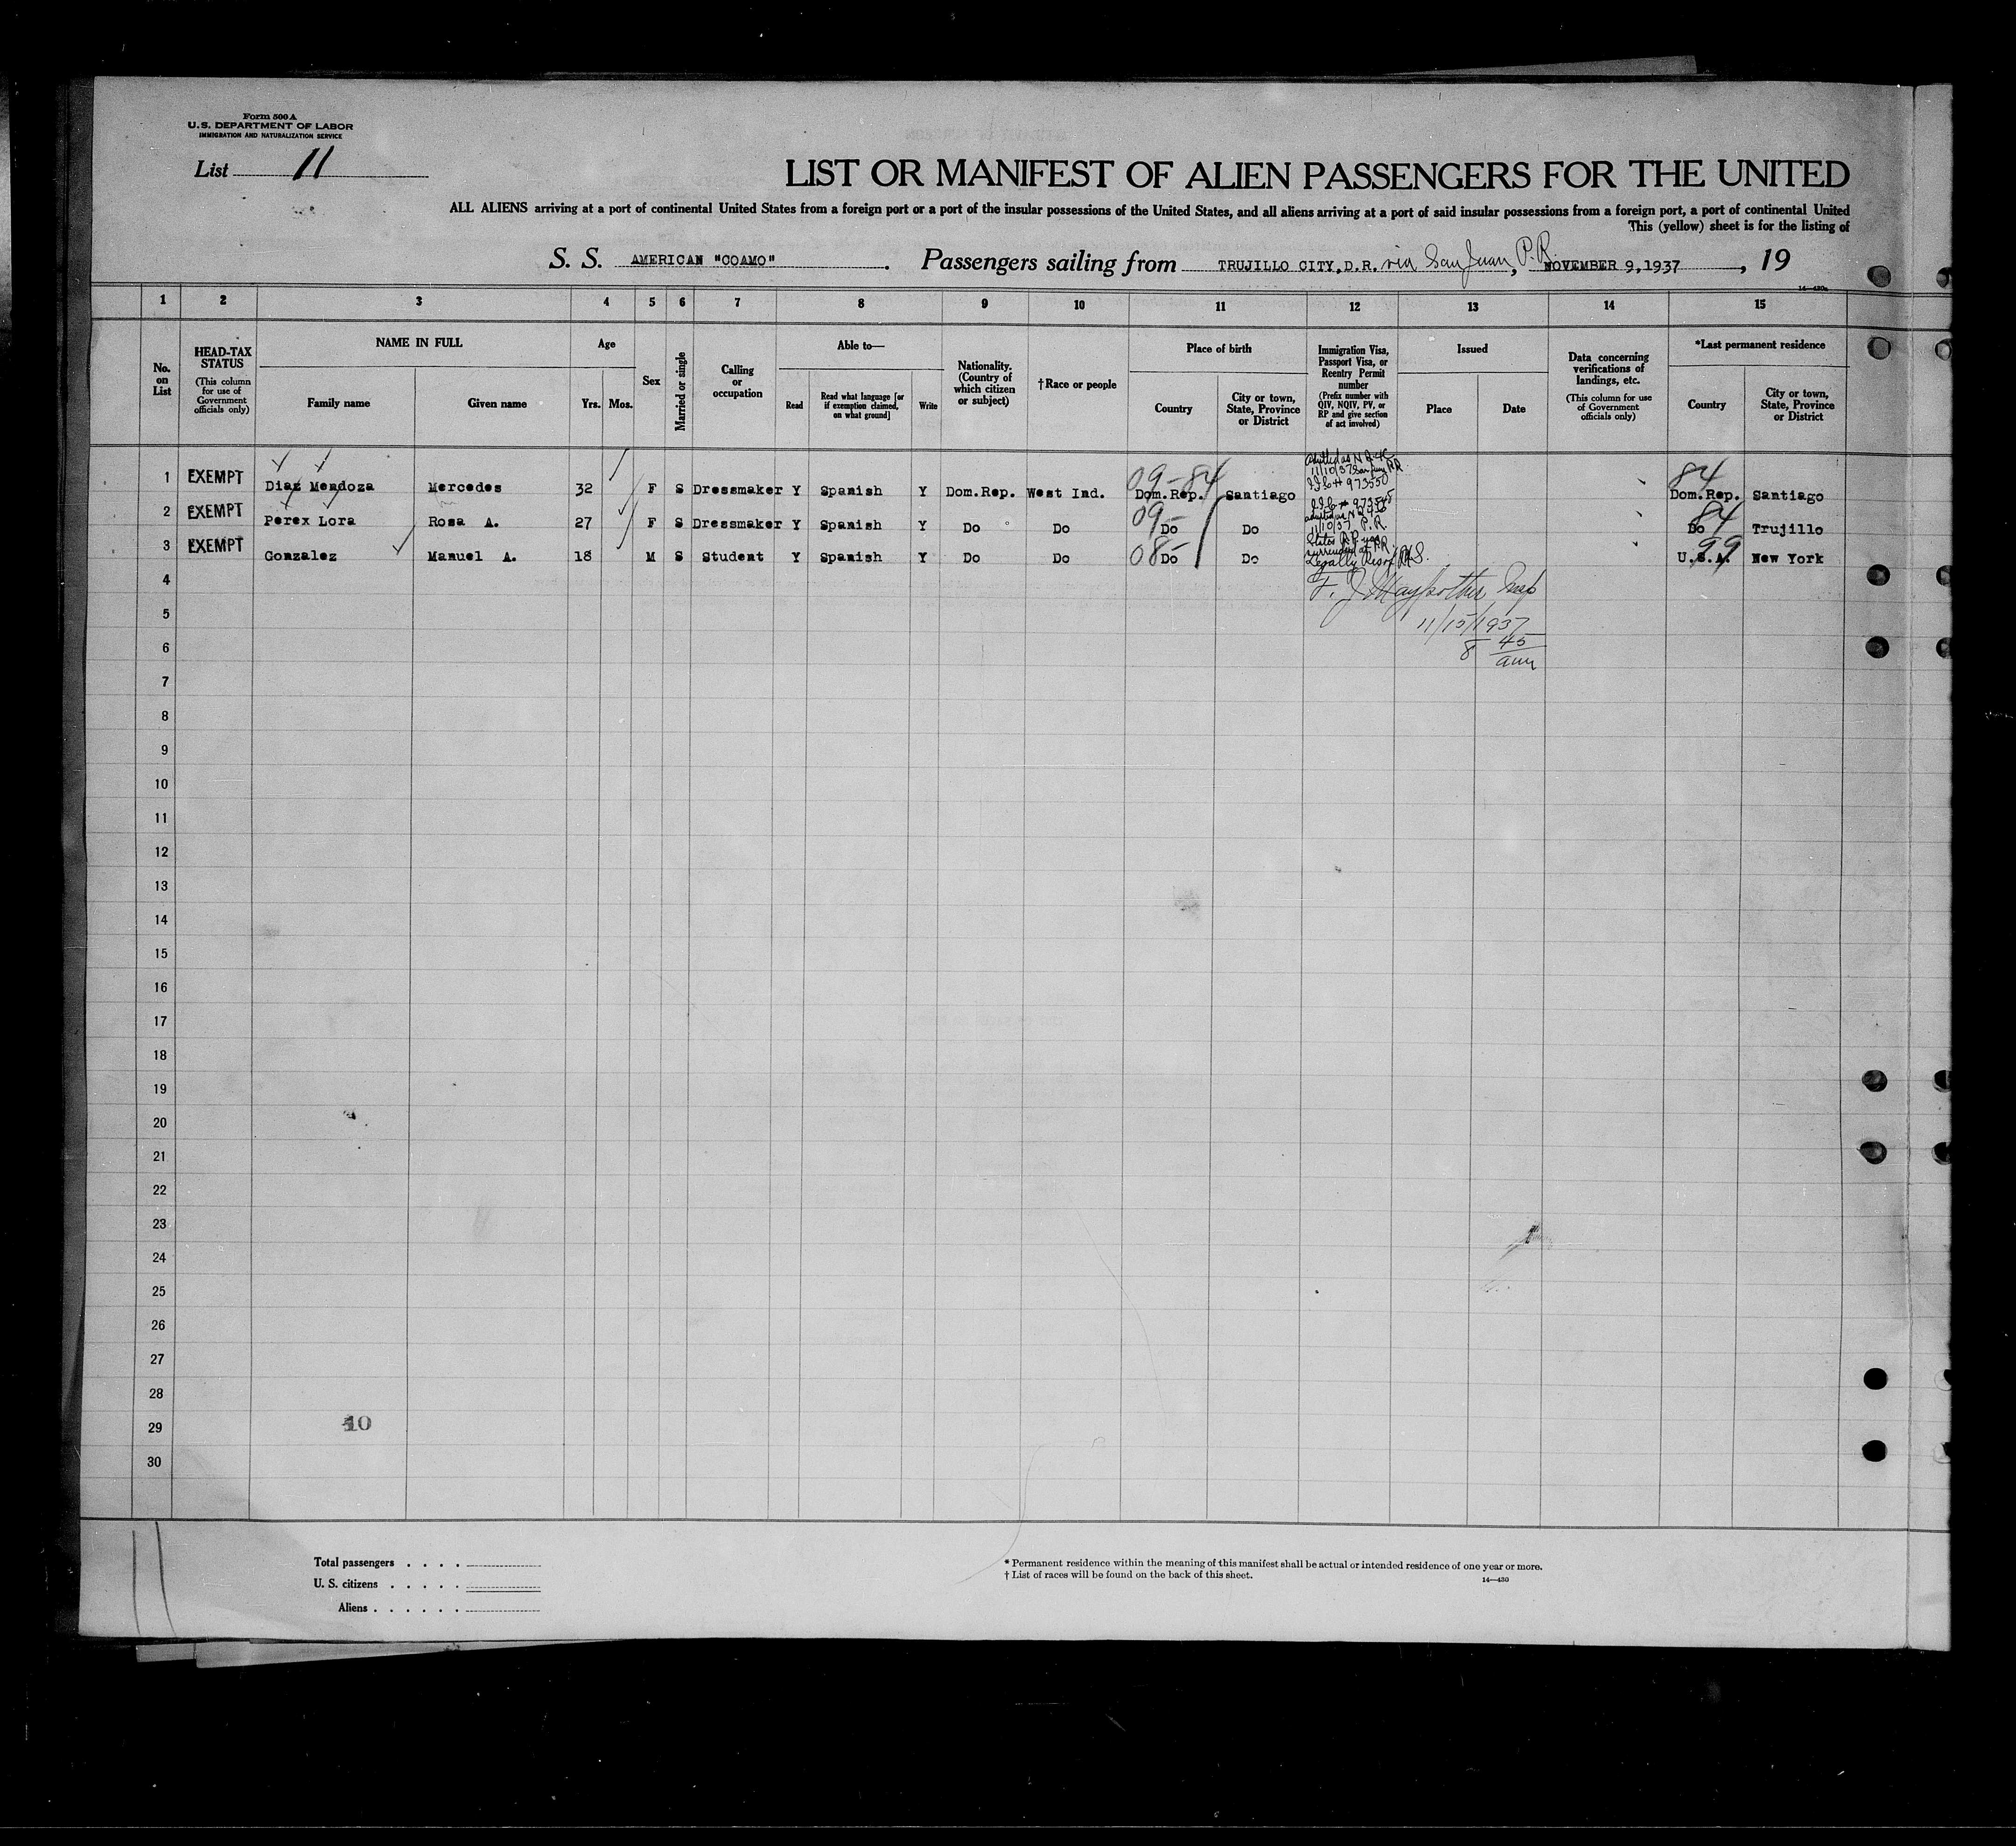 Form 500 A
U.S. DEPARTMENT OF LABOR
IMMIGRATION AND NATURALIZATION SERVICE
List 11
LIST OR MANIFEST OF ALIEN PASSENGERS FOR THE UNITED
ALL ALIENS arriving at a port of continental United States from a foreign port or a port of the insular possessions of the United States, and all aliens arriving at a port of said insular possessions from a foreign port, a port of continental United
This (yellow) sheet is for the listing of
S. S. AMERICAN "COAMO". Passengers sailing from TRUJILLO CITY, D.R. via San Juan, P.R. NOVEMBER 9, 1937, 19
14—430a
1 2 3 4 5 6 7 8 9 10 11 12 13 14 15
No. on List
HEAD-TAX STATUS
(This column for use of Government officials only)
NAME IN FULL
Family name
Given name
Age
Yrs. Mos.
Sex
Married or single
Calling or occupation
Able to—
Read
Read what language [or if exemption claimed, on what ground]
Write
Nationality. (Country of which citizen or subject)
†Race or people
Place of birth
Country
City or town, State, Province or District
Immigration Visa, Passport Visa, or Reentry Permit number
(Prefix number with QIV, NQIV, PV, or RP and give section of act involved)
Issued
Place
Date
Data concerning verifications of landings, etc.
(This column for use of Government officials only)
*Last permanent residence
Country
City or town, State, Province or District
1 EXEMPT Diaz Mendoza Mercedes 32 F S Dressmaker Y Spanish Y Dom.Rep. West Ind. 09-84 Dom.Rep. Santiago 11/10/37 San Juan PR 973550 84 Dom.Rep. Santiago
2 EXEMPT Perex Lora Rosa A. 27 F S Dressmaker Y Spanish Y Do Do 09- Do Do 11/10/37 P.R. 84 Do Trujillo
3 EXEMPT Gonzalez Manuel A. 18 M S Student Y Spanish Y Do Do 085 Do Do States RP was surrendered at PR Legally 99 U.S.A. New York
4
5 11/15/1937
6 8 45 am
7
8
9
10
11
12
13
14
15
16
17
18
19
20
21
22
23
24
25
26
27
28
29
30
Total passengers . . . .
U. S. citizens . . . . .
Aliens . . . . . .
* Permanent residence within the meaning of this manifest shall be actual or intended residence of one year or more.
† List of races will be found on the back of this sheet.
14—430